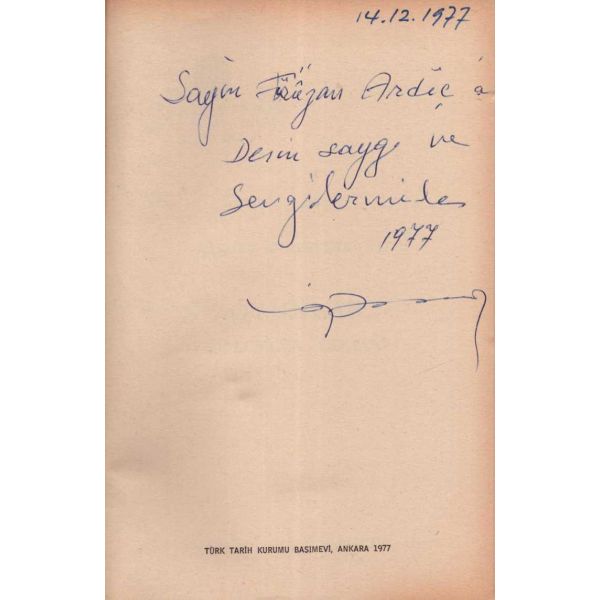 14.12.1977
Sayın Ardıç'a
Derin saygı ve
Sevgilerimle
1977
TÜRK TARİH KURUMU BASIMEVİ, ANKARA 1977